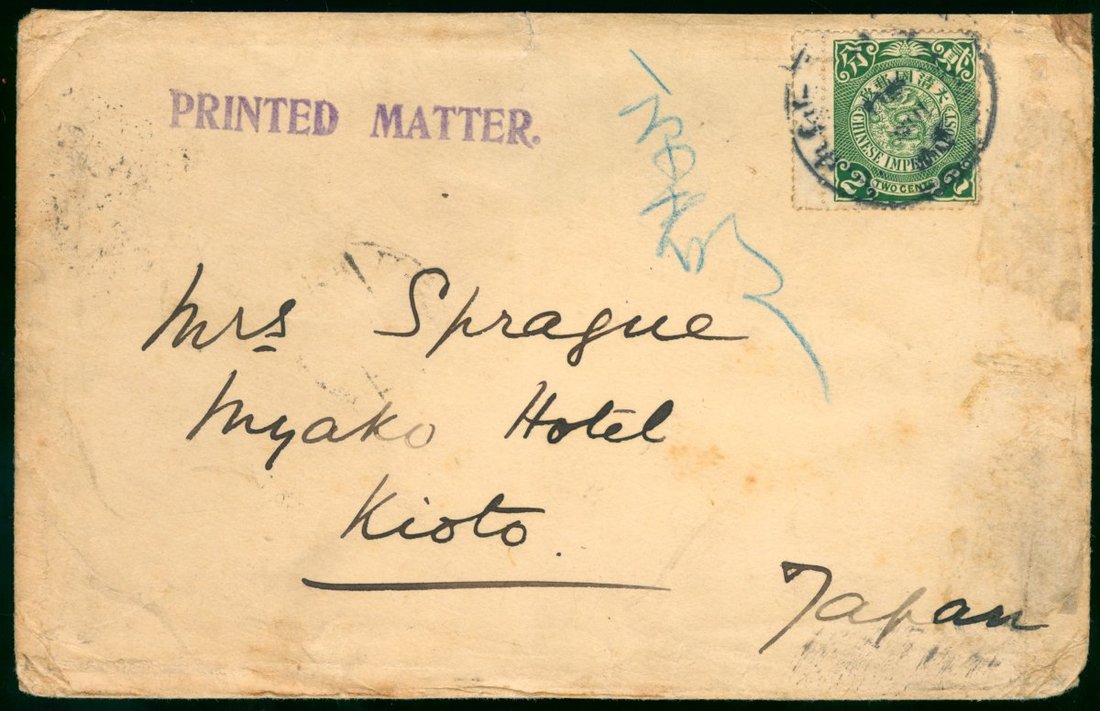 PRINTED MATTER.
大清國郵政
貳 分
CHINESE IMPERIAL POST
2 TWO CENTS 2
Mrs Sprague
Myako Hotel
Kioto.
Japan